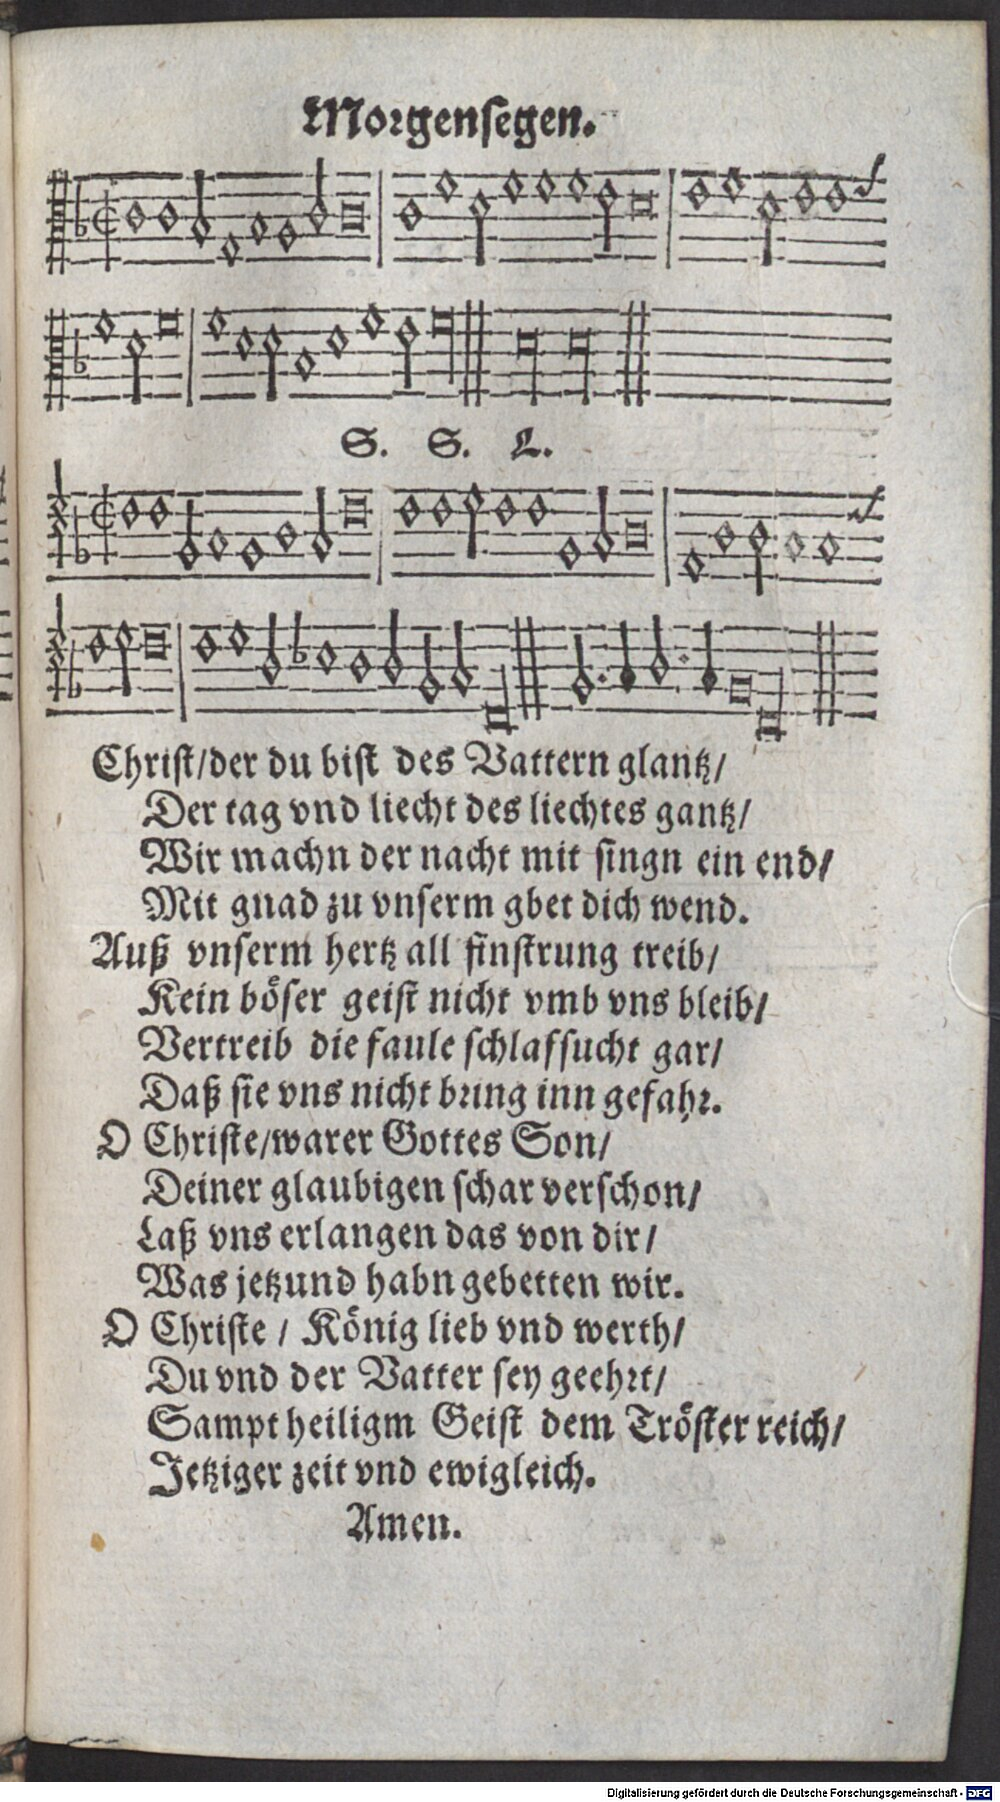 Morgensegen.
S. S. L.
Christ/der du bist des Vattern glantz/
Der tag vnd liecht des liechtes gantz/
Wir machn der nacht mit singn ein end/
Mit gnad zu vnserm gbet dich wend.
Auß vnserm hertz all finstrung treib/
Kein böser geist nicht vmb vns bleib/
Vertreib die faule schlafsucht gar/
Daß sie vns nicht bring inn gefahr.
O Christe/warer Gottes Son/
Deiner glaubigen schar verschon/
Laß vns erlangen das von dir/
Was jetzund habn gebetten wir.
O Christe / König lieb vnd werth/
Du vnd der Vatter sey geehrt/
Sampt heiligm Geist dem Tröster reich/
Jetziger zeit vnd ewigleich.
Amen.
Digitalisierung gefördert durch die Deutsche Forschungsgemeinschaft - DFG